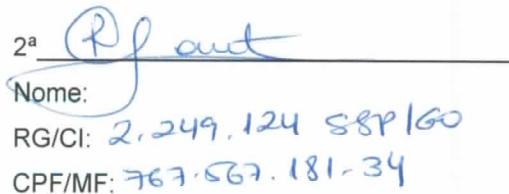 2ª
Nome:
RG/CI: 2.249.124 SSP/GO
CPF/MF: 767.567.181-34